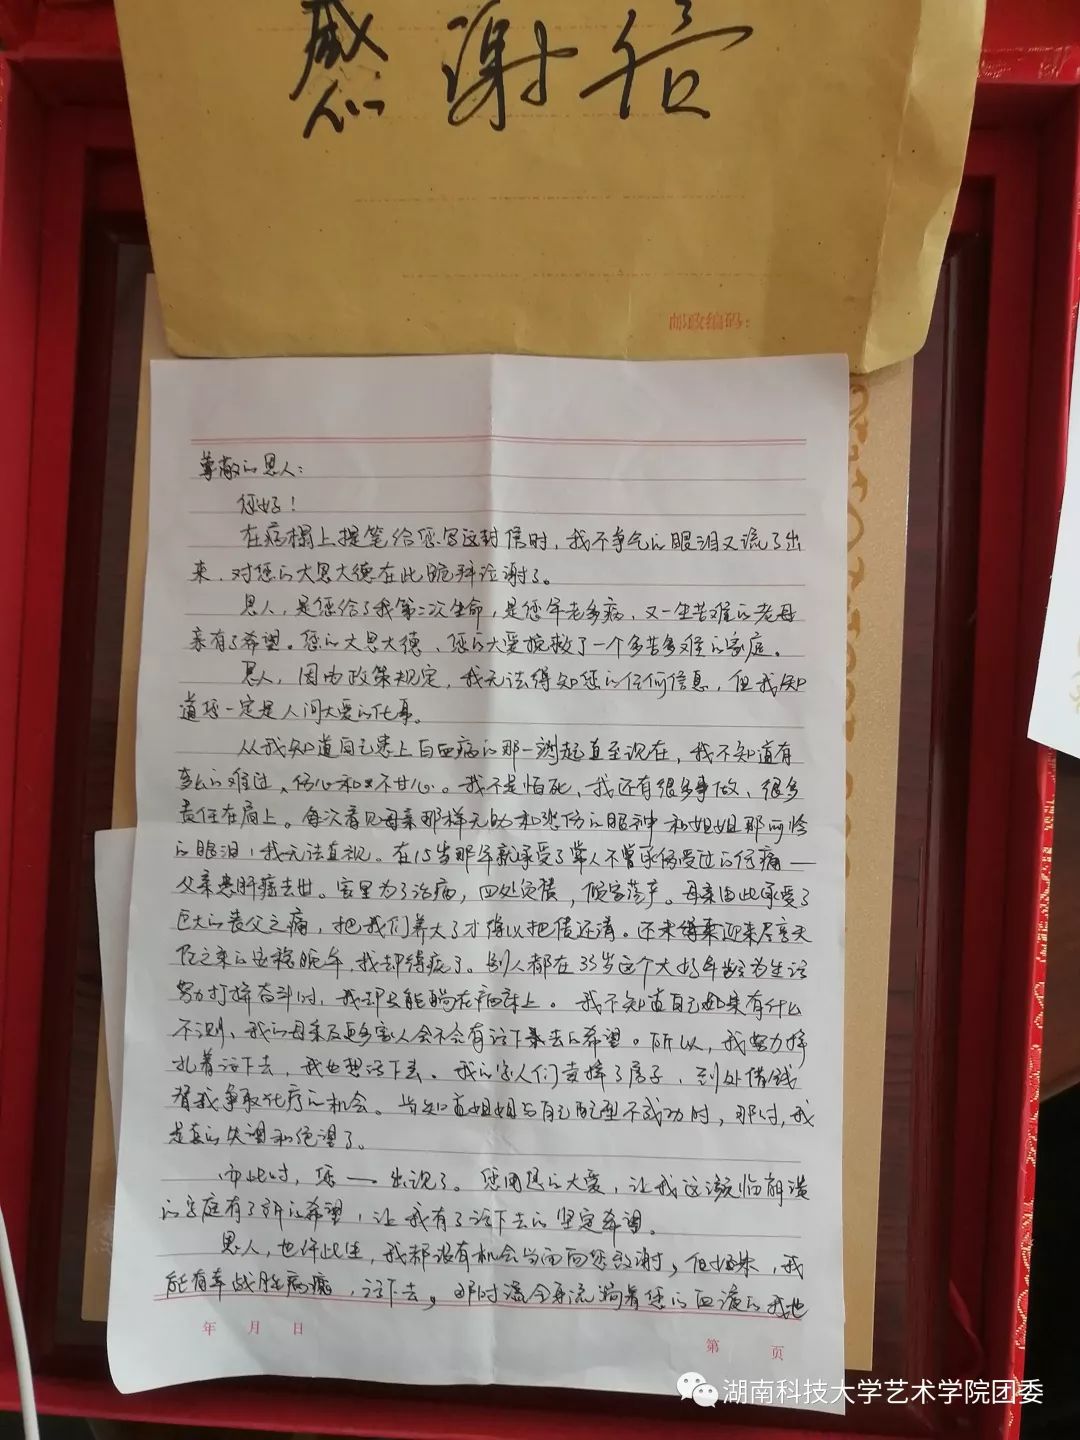 感谢信
邮政编码:
尊敬的恩人:
您好!
在病榻上提笔给您写这封信时,我不争气的眼泪又流了出
来,对您的大恩大德在此跪拜泣谢了。
恩人,是您给了我第二次生命,是您年老多病,又一生苦难的老母
亲有了希望。您的大恩大德,您的大爱挽救了一个多苦多难的家庭。
恩人,因为政策规定,我无法得知您的任何信息,但我知
道您一定是人间大爱的化身。
从我知道自己患上白血病的那一刻起直至现在,我不知道有
多么的难过、伤心和不甘心。我不是怕死,我还有很多事做,很多
责任在肩上。每次看见母亲那样无助和悲伤的眼神和姐姐那可怜
的眼泪,我无法直视。在15岁那年就承受了常人不曾承受过的伤痛——
父亲患肝癌去世。家里为了治病,四处欠债,倾家荡产。母亲由此承受了
巨大的丧夫之痛,把我们养大了才得以把债还清。还未迎来尽享天
伦之乐的安稳晚年,我却得病了。别人都在35岁这个大好年龄为生活
努力打拼奋斗时,我却只能躺在病床上。我不知道自己如果有什么
不测,我的母亲及更多家人会不会有活下去的希望。所以,我努力挣
扎着活下去,我也想活下去。我的家人们卖掉了房子,到处借钱
替我争取化疗的机会。当知道姐姐与自己配型不成功时,那时,我
是真的失望和绝望了。
而此时,您——出现了。您用您的大爱,让我这濒临崩溃
的家庭有了新的希望,让我有了活下去的坚定希望。
恩人,也许此生,我都没有机会当面向您致谢,但如果,我
能有幸战胜病魔,活下去,那时满全身流淌着您的血液的我也
年 月 日
第 页
湖南科技大学艺术学院团委